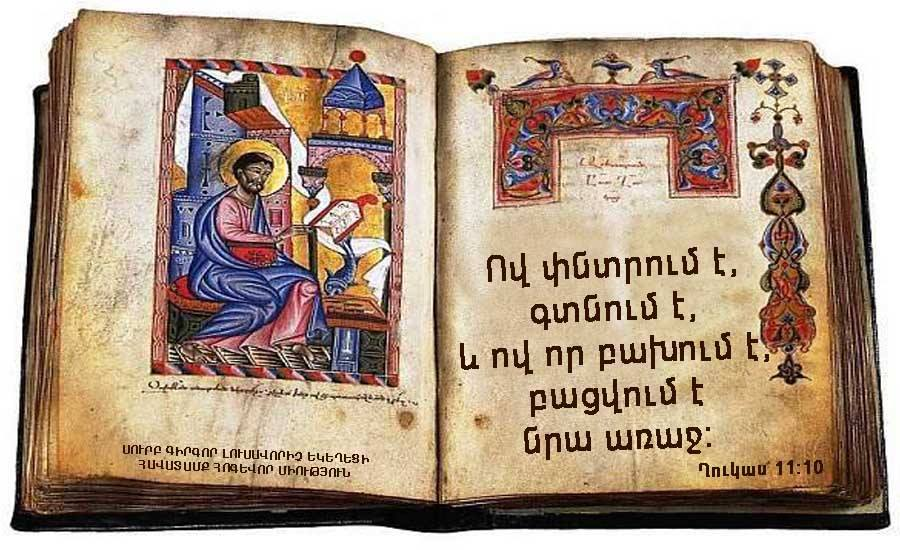 ՍՈՒՐԲ ԳԻՐԳՈՐ ԼՈՒՍԱՎՈՐԻՉ ԵԿԵՂԵՑԻ
ՀԱՎԱՏԱՄՔ ՀՈԳԵՎՈՐ ՄԻՈՒԹՅՈՒՆ
Ով փնտրում է,
գտնում է,
և ով որ բախում է,
բացվում է
նրա առաջ:
Ղուկաս 11:10